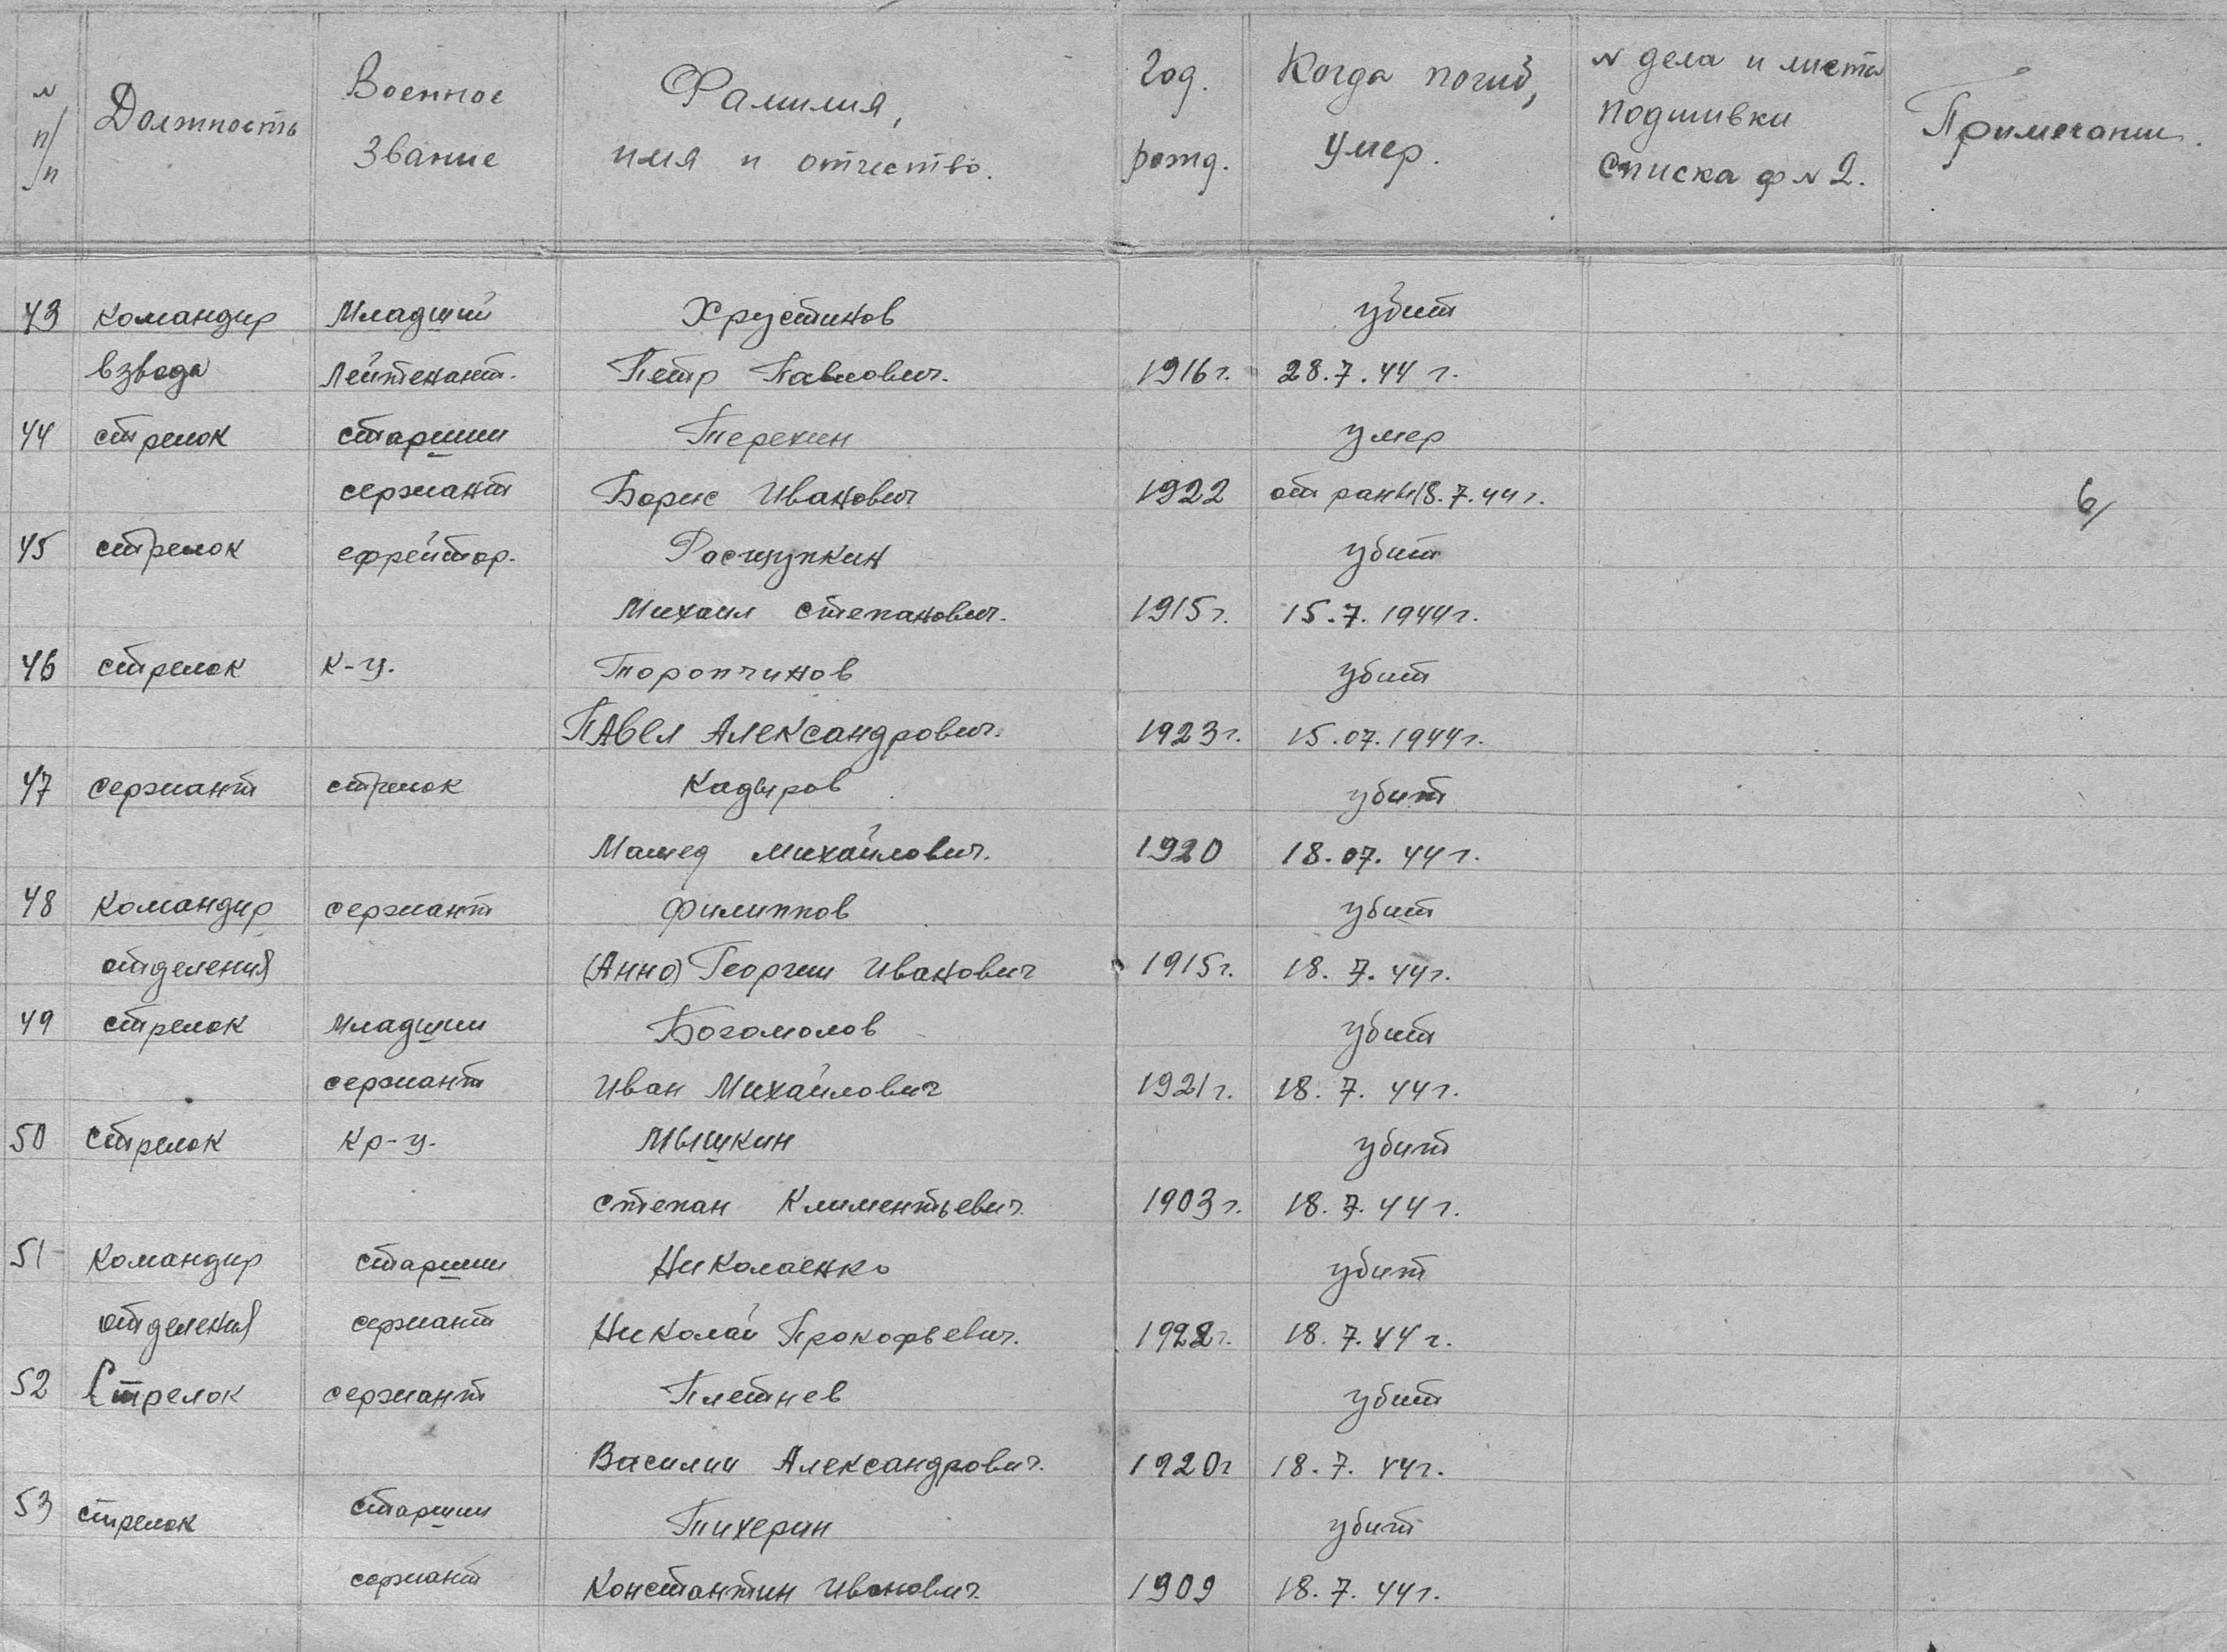 № п/п Должность Военное звание Фамилия, имя и отчество. Год. рожд. Когда погиб, умер. № дела и листа подшивки списка ф № 2. Примечание.
43 командир Младший Хрустинов убит
взвода Лейтенант. Петр Павлович. 1916 г. 28.7.44 г.
44 стрелок старшии Терехин умер
сержант Борис Иванович 1922 от ран 18.7.44 г. 6/
45 стрелок ефрейтор. Расщупкин убит
Михаил Степанович. 1915 г. 15.7.1944 г.
46 стрелок к-ц. Торопчинов убит
Павел Александрович. 1923 г. 15.07.1944 г.
47 сержант стрелок Кадыров убит
Мамед Михайлович. 1920 18.07.44 г.
48 командир сержант Филиппов убит
отделения (Анно) Георгии Иванович 1915 г. 18.7.44 г.
49 стрелок Младшии Богомолов убит
сержант Иван Михайлович 1921 г. 18.7.44 г.
50 стрелок кр-ц. Мышкин убит
Степан Климентьевич 1903 г. 18.7.44 г.
51 командир старшии Николаенко убит
отделения сержант Николай Прокофьевич. 1922 г. 18.7.44 г.
52 Стрелок сержант Плетнев убит
Василии Александрович. 1920 г 18.7.44 г.
53 стрелок старшии Тихерин убит
сержант Константин Иванович. 1909 18.7.44 г.